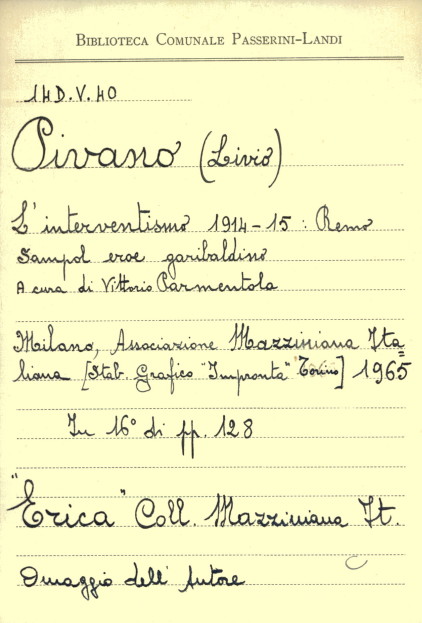 BIBLIOTECA COMUNALE PASSERINI-LANDI
14D.V.40
Pivano (Livio)
L'interventismo 1914-15 : Remo
Sampol eroe garibaldino
A cura di Vittorio Parmentola
Milano, Associazione Mazziniana Ita=
liana [Stab. Grafico "Impronta" Torino] 1965
In 16° di pp. 128
"Erica" Coll. Mazziniana It.
Omaggio dell'Autore